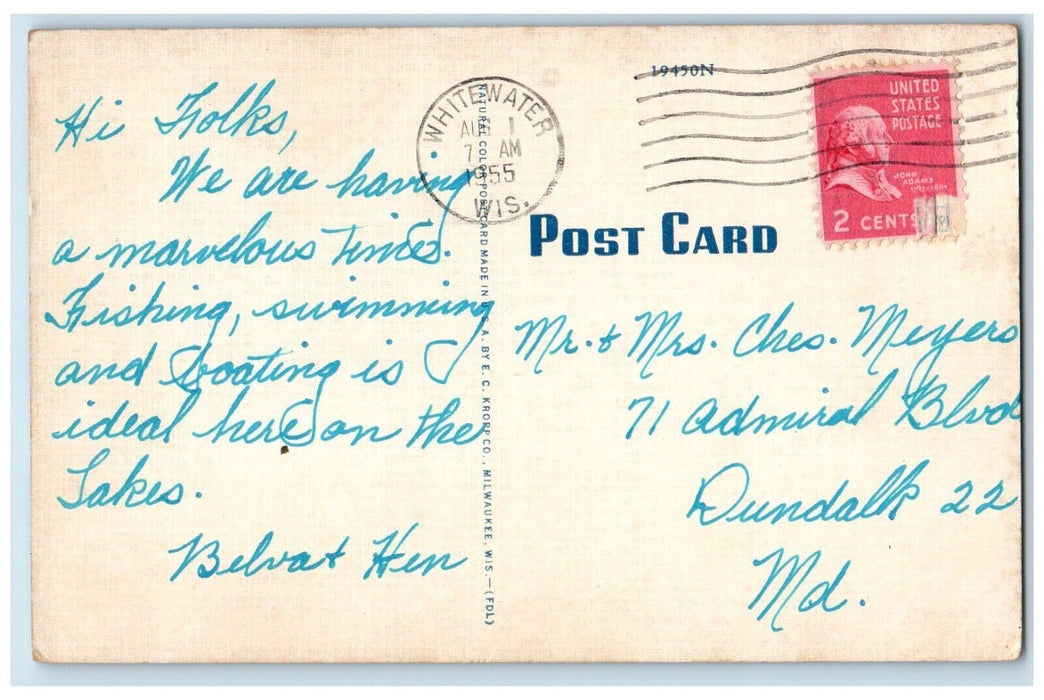 Hi Folks,
We are having
a marvelous time.
Fishing, swimming
and boating is
ideal here on the
Lakes.
Belva + Hen
NATURAL COLOR POST CARD MADE IN U.S.A. BY E. C. KROPP CO., MILWAUKEE, WIS.—(FDL)
WHITEWATER
AUG 1
7 AM
1955
WIS.
19450N
UNITED
STATES
POSTAGE
JOHN
ADAMS
1797-1801
2 CENTS
POST CARD
Mr. + Mrs. Ches. Meyers
71 Admiral Blvd
Dundalk 22
Md.